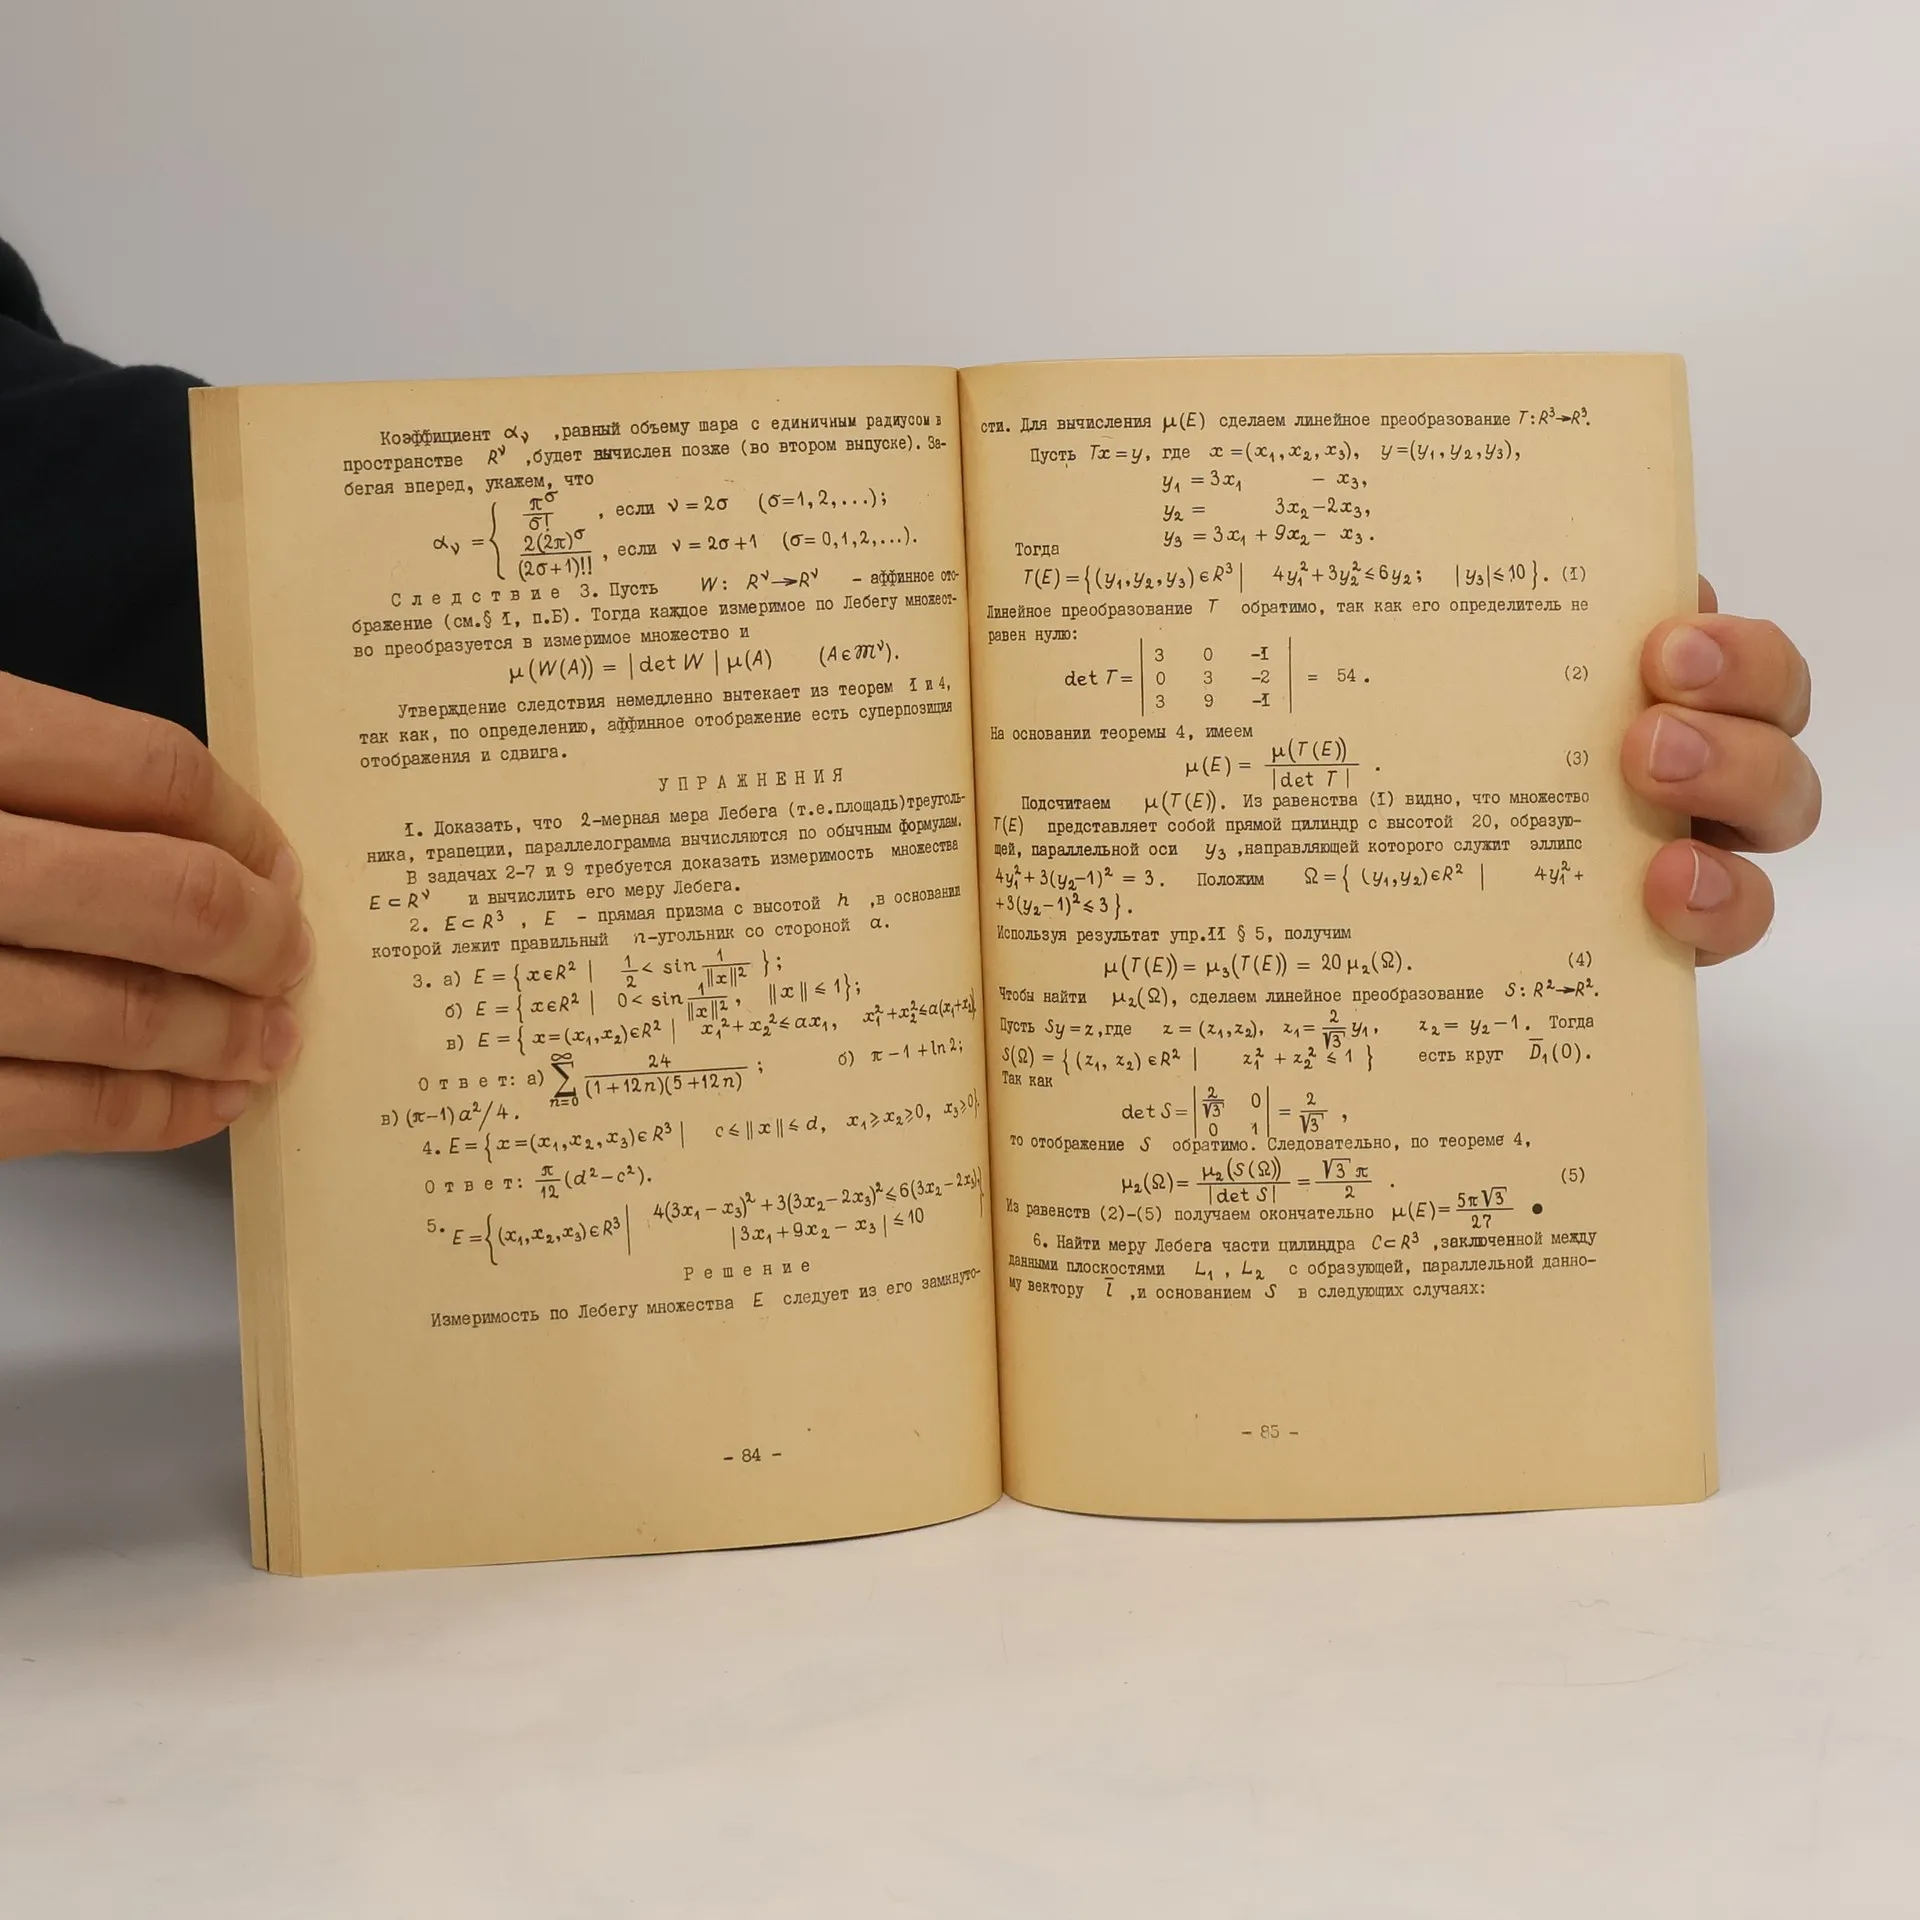 Коэффициент αᵥ ,равный объему шара с единичным радиусом в
пространстве Rᵛ ,будет вычислен позже (во втором выпуске). За-
бегая вперед, укажем, что
αᵥ = { π^σ/σ! , если ν = 2σ (σ=1,2,...);
2(2π)^σ/(2σ+1)!! , если ν = 2σ+1 (σ=0,1,2,...).
Следствие 3. Пусть W: Rᵛ→Rᵛ - аффинное ото-
бражение (см.§ 1, п.Б). Тогда каждое измеримое по Лебегу множест-
во преобразуется в измеримое множество и
μ(W(A)) = |det W| μ(A) (A∈𝔐ᵛ).
Утверждение следствия немедленно вытекает из теорем 1 и 4,
так как, по определению, аффинное отображение есть суперпозиция
отображения и сдвига.
УПРАЖНЕНИЯ
1. Доказать, что 2-мерная мера Лебега (т.е.площадь)треуголь-
ника, трапеции, параллелограмма вычисляются по обычным формулам.
В задачах 2-7 и 9 требуется доказать измеримость множества
E⊂Rᵛ и вычислить его меру Лебега.
2. E⊂R³ , E - прямая призма с высотой h ,в основании
которой лежит правильный n-угольник со стороной a.
3. а) E = {x∈R² | 1/2 < sin 1/‖x‖² };
б) E = {x∈R² | 0 < sin 1/‖x‖² , ‖x‖ ⩽ 1};
в) E = {x=(x₁,x₂)∈R² | x₁²+x₂² ⩽ ax₁, x₁²+x₂² ⩽ a(x₁+x₂)}
Ответ: а) ∑_{n=0}^{∞} 24/((1+12n)(5+12n)) ; б) π-1+ln2;
в) (π-1)a²/4.
4. E = {x=(x₁,x₂,x₃)∈R³ | c⩽‖x‖⩽d, x₁⩾x₂⩾0, x₃⩾0}.
Ответ: π/12 (d²-c²).
5. E = {(x₁,x₂,x₃)∈R³ | 4(3x₁-x₃)²+3(3x₂-2x₃)²⩽6(3x₂-2x₃),
|3x₁+9x₂-x₃|⩽10 }.
Решение
Измеримость по Лебегу множества E следует из его замкнуто-
- 84 -
сти. Для вычисления μ(E) сделаем линейное преобразование T:R³→R³.
Пусть Tx=y, где x=(x₁,x₂,x₃), y=(y₁,y₂,y₃),
y₁ = 3x₁ - x₃,
y₂ = 3x₂-2x₃,
y₃ = 3x₁ + 9x₂- x₃.
Тогда
T(E)={(y₁,y₂,y₃)∈R³| 4y₁²+3y₂²⩽6y₂; |y₃|⩽10}. (1)
Линейное преобразование T обратимо, так как его определитель не
равен нулю:
det T= | 3 0 -1 |
| 0 3 -2 | = 54. (2)
| 3 9 -1 |
На основании теоремы 4, имеем
μ(E) = μ(T(E))/|det T| . (3)
Подсчитаем μ(T(E)). Из равенства (1) видно, что множество
T(E) представляет собой прямой цилиндр с высотой 20, образую-
щей, параллельной оси y₃ ,направляющей которого служит эллипс
4y₁²+3(y₂-1)² = 3. Положим Ω={ (y₁,y₂)∈R² | 4y₁²+
+3(y₂-1)²⩽3}.
Используя результат упр.11 § 5, получим
μ(T(E)) = μ₃(T(E)) = 20μ₂(Ω). (4)
Чтобы найти μ₂(Ω), сделаем линейное преобразование S: R²→R².
Пусть Sy=z,где z=(z₁,z₂), z₁= 2/√3 y₁, z₂= y₂-1. Тогда
S(Ω) = {(z₁, z₂)∈R² | z₁² + z₂² ⩽ 1 } есть круг D̄₁(0).
Так как
det S= | 2/√3 0 |
| 0 1 | = 2/√3 ,
то отображение S обратимо. Следовательно, по теореме 4,
μ₂(Ω)= μ₂(S(Ω))/|det S| = √3 π/2 . (5)
Из равенств (2)-(5) получаем окончательно μ(E)= 5π√3/27 ●
6. Найти меру Лебега части цилиндра C⊂R³ ,заключенной между
данными плоскостями L₁ , L₂ с образующей, параллельной данно-
му вектору l̄ ,и основанием S в следующих случаях:
- 85 -